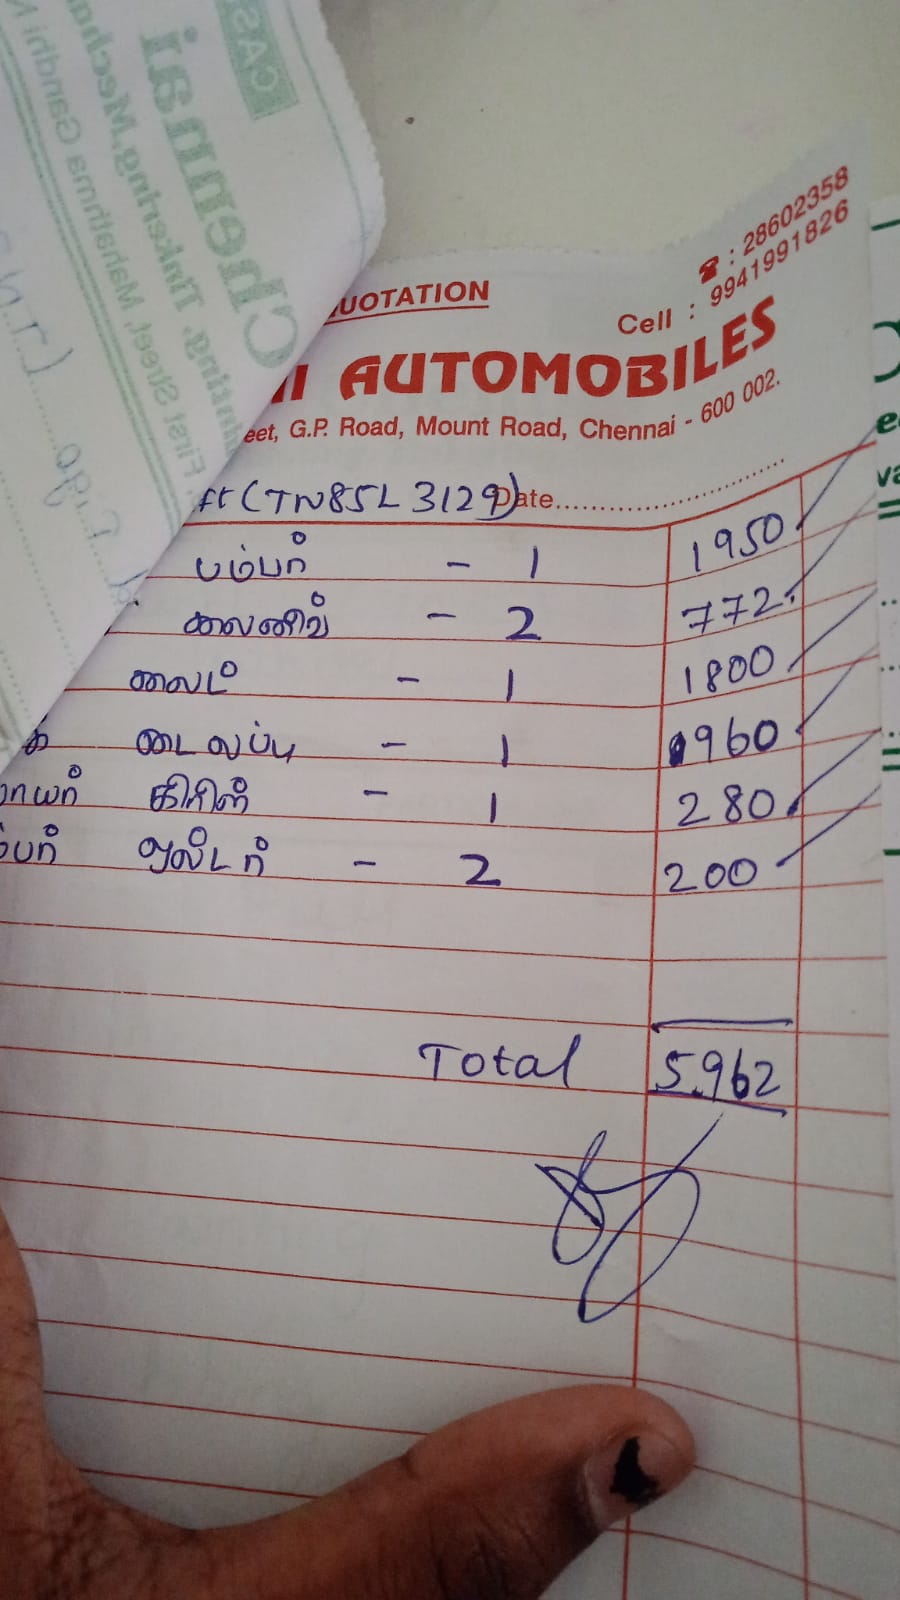 QUOTATION
☎ : 28602358
Cell : 9941991826
AUTOMOBILES
eet, G.P. Road, Mount Road, Chennai - 600 002.
ft (TN85L 3129) Date
பம்பர் - 1 1950
லைனிங் - 2 772
லைட் - 1 1800
டைலப்பு - 1 960
கிரில் - 1 280
ம்பர் - 2 200
Total 5962
CAS
Chennai
Tinkering, Mecha
First Street, Mahathma Gandhi N